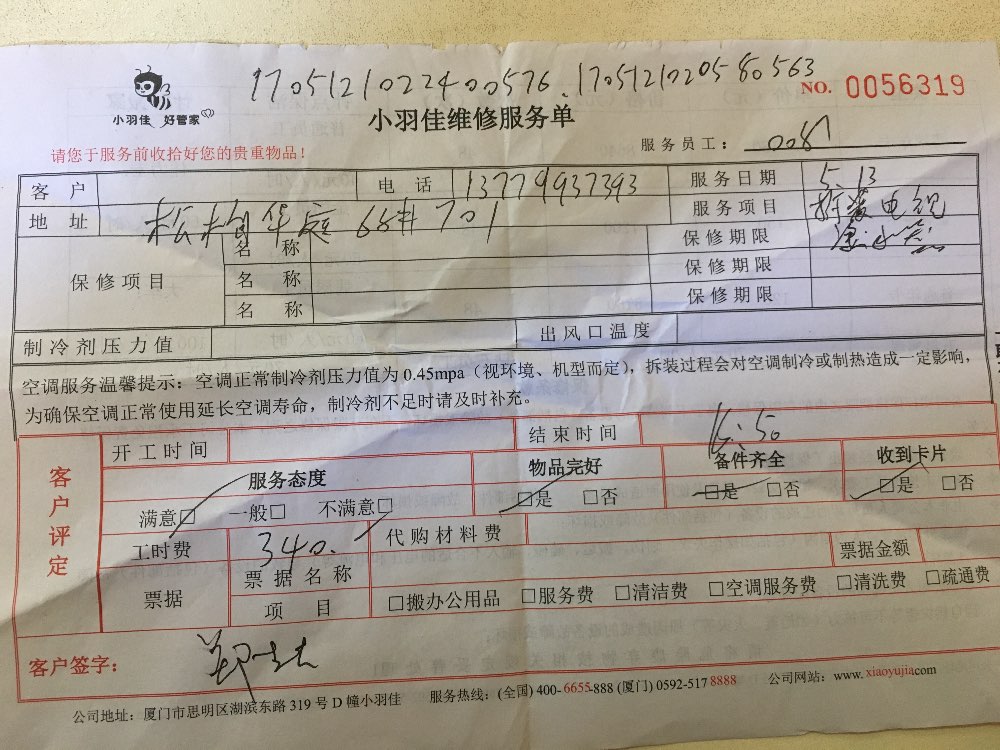 1705121022400576.1705121020580563
NO. 0056319
小羽佳 好管家
小羽佳维修服务单
请您于服务前收拾好您的贵重物品！
服务员工：008
客户 电话 13779937393 服务日期 5.13
地址 松柏华庭 65# 701 服务项目 拆装电视
保修项目 名称 保修期限
名称 保修期限
名称 保修期限
制冷剂压力值 出风口温度
空调服务温馨提示：空调正常制冷剂压力值为 0.45mpa（视环境、机型而定），拆装过程会对空调制冷或制热造成一定影响，
为确保空调正常使用延长空调寿命，制冷剂不足时请及时补充。
客户评定
开工时间 结束时间 16:50
服务态度 物品完好 备件齐全 收到卡片
满意□ 一般□ 不满意□ □是 □否 □是 □否 □是 □否
工时费 340. 代购材料费
票据 票据名称 票据金额
项目 □搬办公用品 □服务费 □清洁费 □空调服务费 □清洗费 □疏通费
客户签字：郑
公司地址：厦门市思明区湖滨东路 319 号 D 幢小羽佳 服务热线：(全国) 400-6655-888 (厦门) 0592-517 8888 公司网站：www.xiaoyujia.com